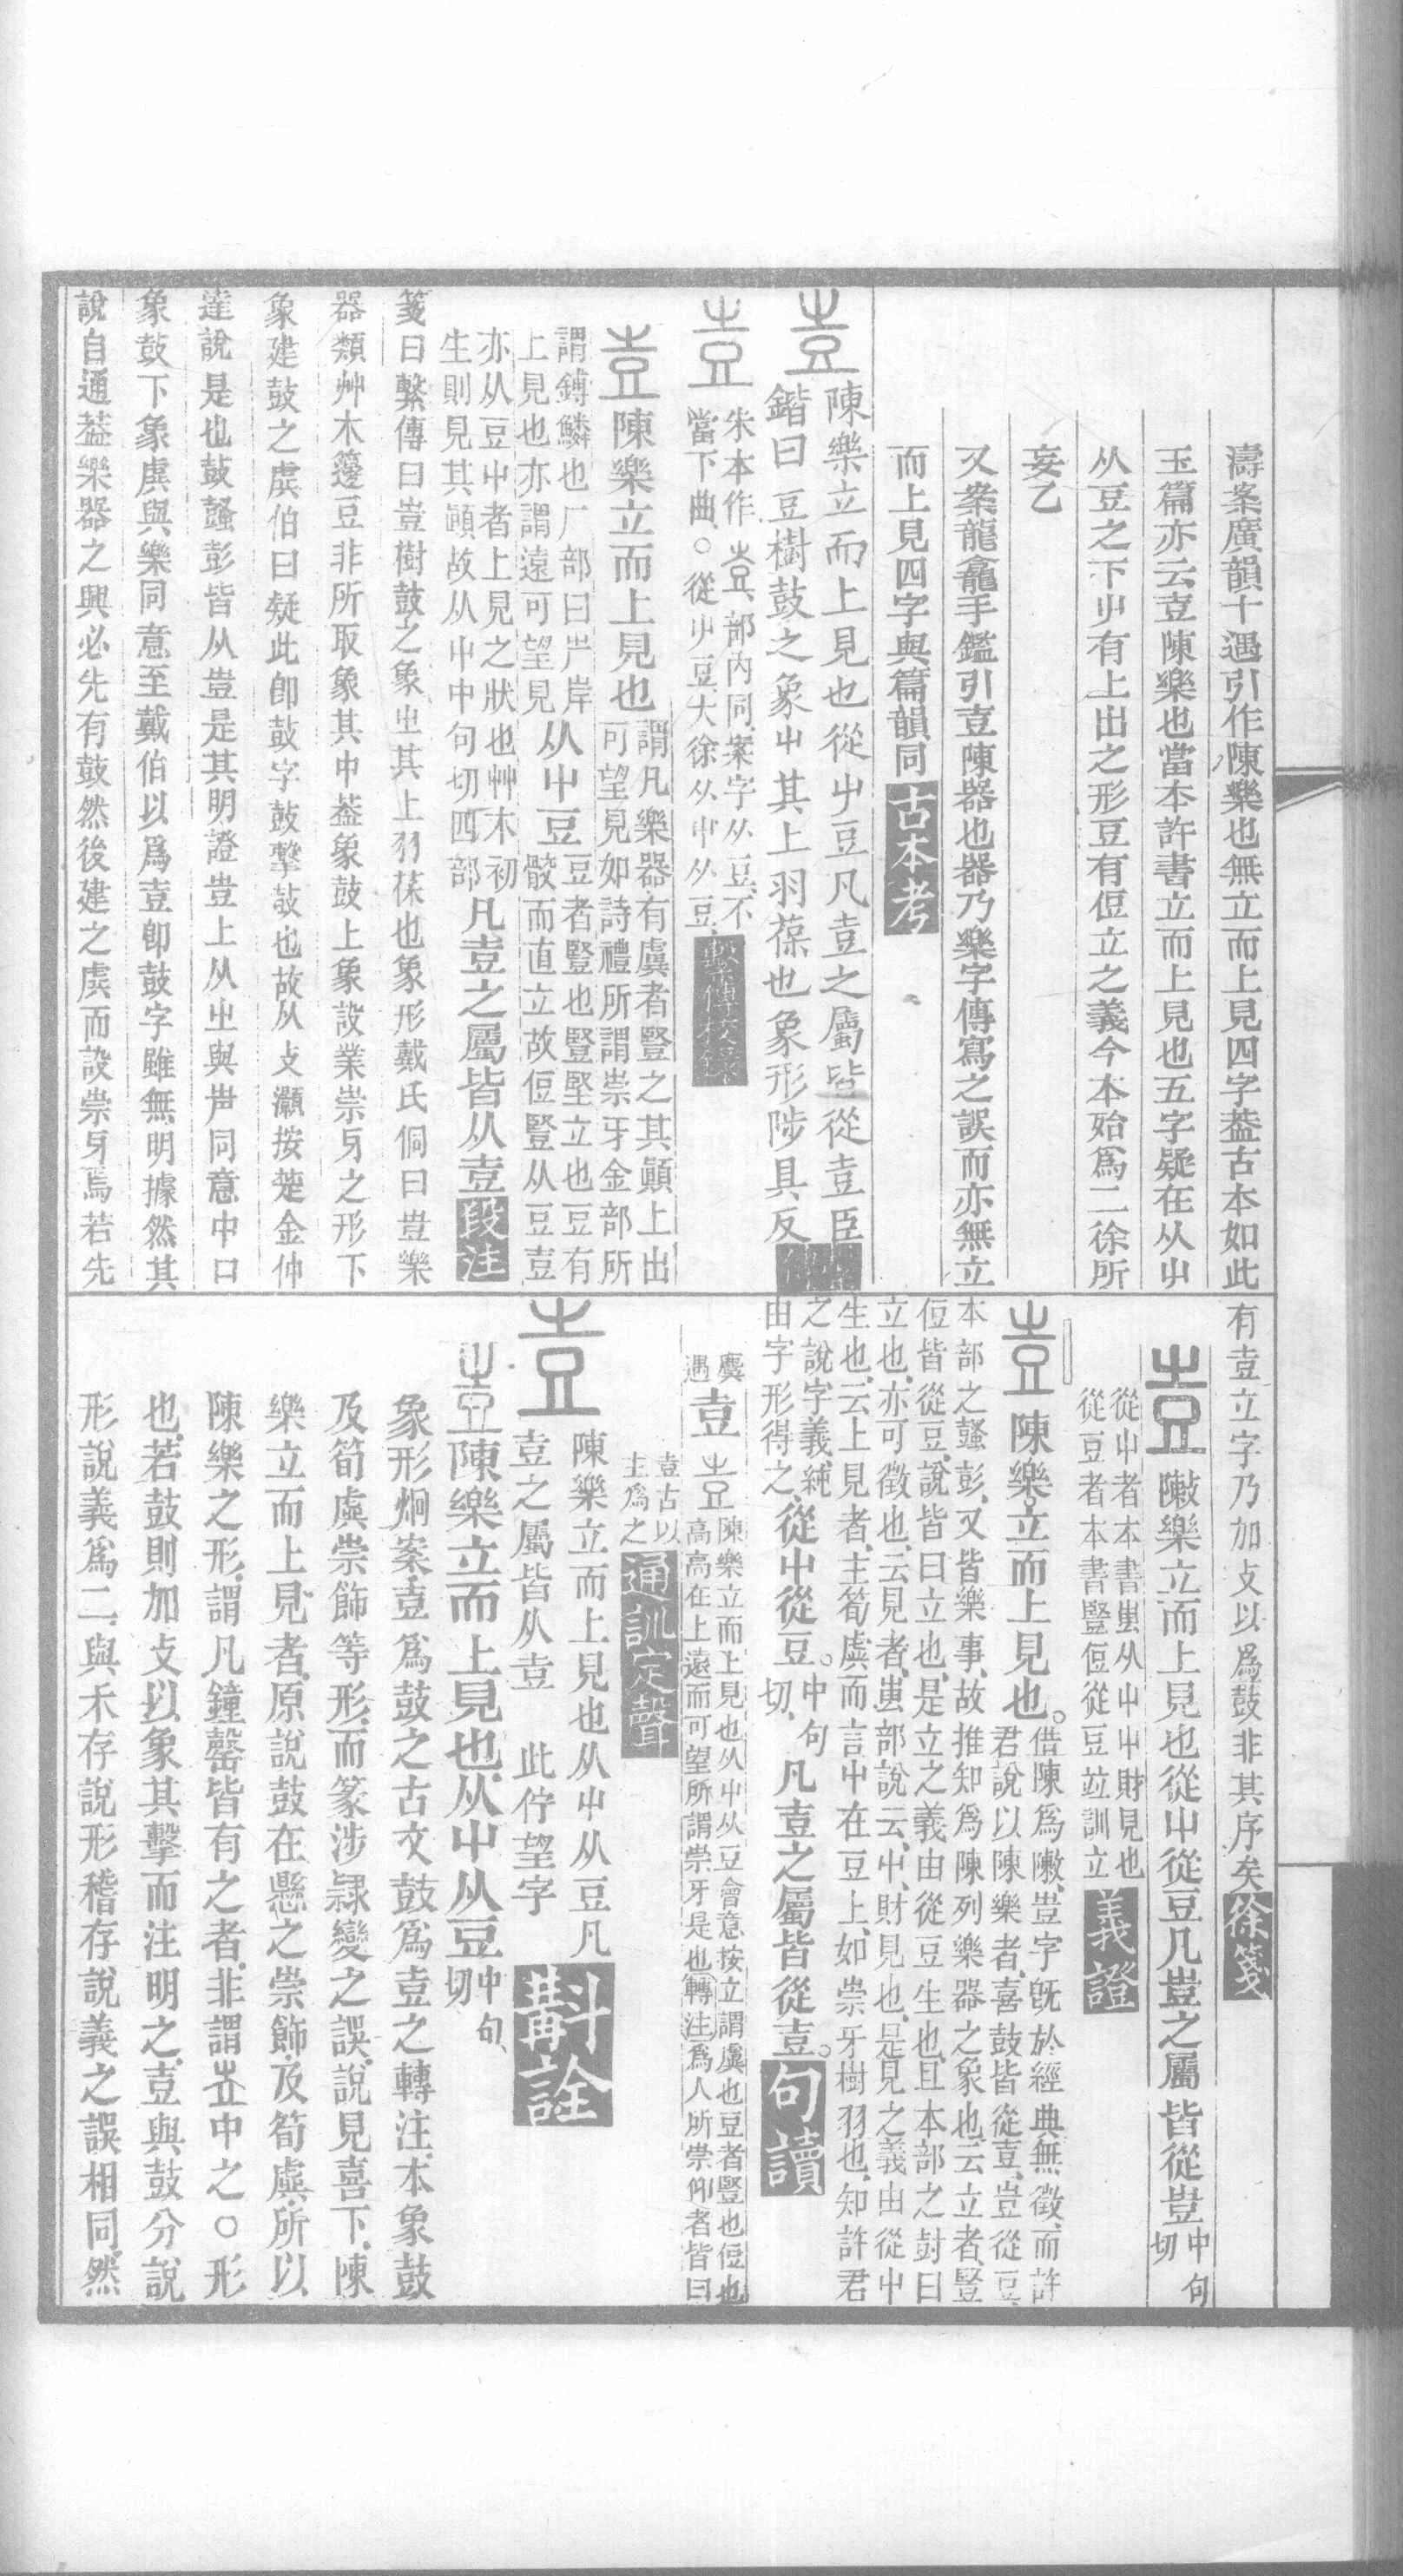 濤案廣韻十遇引作陳樂也無立而上見四字葢古本如此
玉篇亦云壴陳樂也當本許書立而上見也五字疑在从屮
从豆之下屮有上出之形豆有侸立之義今本殆爲二徐所
妄乙
又案龍龕手鑑引壴陳器也器乃樂字傳寫之誤而亦無立
而上見四字與篇韻同 古本考
壴 陳樂立而上見也從屮豆凡壴之屬皆從壴臣
鍇曰豆樹鼓之象屮其上羽葆也象形陟具反
壴 朱本作壴部內同案字从豆不
當下曲○從屮豆大徐从屮从豆
壴 陳樂立而上見也
謂凡樂器有虡者豎之其顚上出
可望見如詩禮所謂崇牙金部所
謂鎛鱗也厂部曰屵岸
上見也亦謂遠可望見
从屮豆
豆者豎也豎堅立也豆有
骹而直立故侸豎从豆壴
亦从豆屮者上見之狀也艸木初
生則見其顚故从屮中句切四部
凡壴之屬皆从壴 段注
箋曰繫傳曰壴樹鼓之象㞢其上羽葆也象形戴氏侗曰壴樂
器類艸木籩豆非所取象其中葢象鼓上象設業崇牙之形下
象建鼓之虡伯曰疑此卽鼓字鼓擊鼓也故从攴灝按楚金仲
達說是也鼓鼛彭皆从壴是其明證壴上从㞢與声同意中口
象鼓下象虡與樂同意至戴伯以爲壴卽鼓字雖無明據然其
說自通葢樂器之興必先有鼓然後建之虡而設崇牙焉若先
有壴立字乃加攴以爲鼓非其序矣 徐箋
壴 敶樂立而上見也從屮從豆凡壴之屬皆從壴 中句切
從屮者本書㞢从屮屮財見也
從豆者本書豎侸從豆竝訓立 義證
壴 陳樂立而上見也。
借陳爲敶、壴字旣於經典無徵、而許
君說以陳樂者、喜鼓皆從壴、豈從豆、
本部之鼛彭、又皆樂事、故推知爲陳列樂器之象也、云立者、豎
侸皆從豆、說皆曰立也、是立之義由從豆生也、且本部之尌曰
立也、亦可徵也、云見者、㞢部說云、屮、財見也、是見之義由從屮
生也、云上見者、主筍虡而言、屮在豆上、如崇牙樹羽也、知許君
之說字義、純
由字形得之、
從屮從豆。中句切、凡壴之屬皆從壴。 句讀
虞遇 壴
陳樂立而上見也从屮从豆會意按立謂虡也豆者豎也侸也
高高在上遠而可望所謂崇牙是也轉注爲人所崇仰者皆曰
壴古以
主爲之 通訓定聲
壴 陳樂立而上見也从屮从豆凡
壴之屬皆从壴 此佇望字 斠詮
壴 陳樂立而上見也、从屮从豆 中句、切
象形炯案壴爲鼓之古文鼓爲壴之轉注、本象鼓
及筍虡崇飾等形、而篆涉隷變之誤、說見喜下、陳
樂立而上見者、原說鼓在懸之崇飾、及筍虡、所以
陳樂之形、謂凡鐘罄皆有之者、非謂壴中之○形
也、若鼓則加攴以象其擊而注明之、壴與鼓分說
形說義爲二、與禾存說形稽存說義之誤相同、然